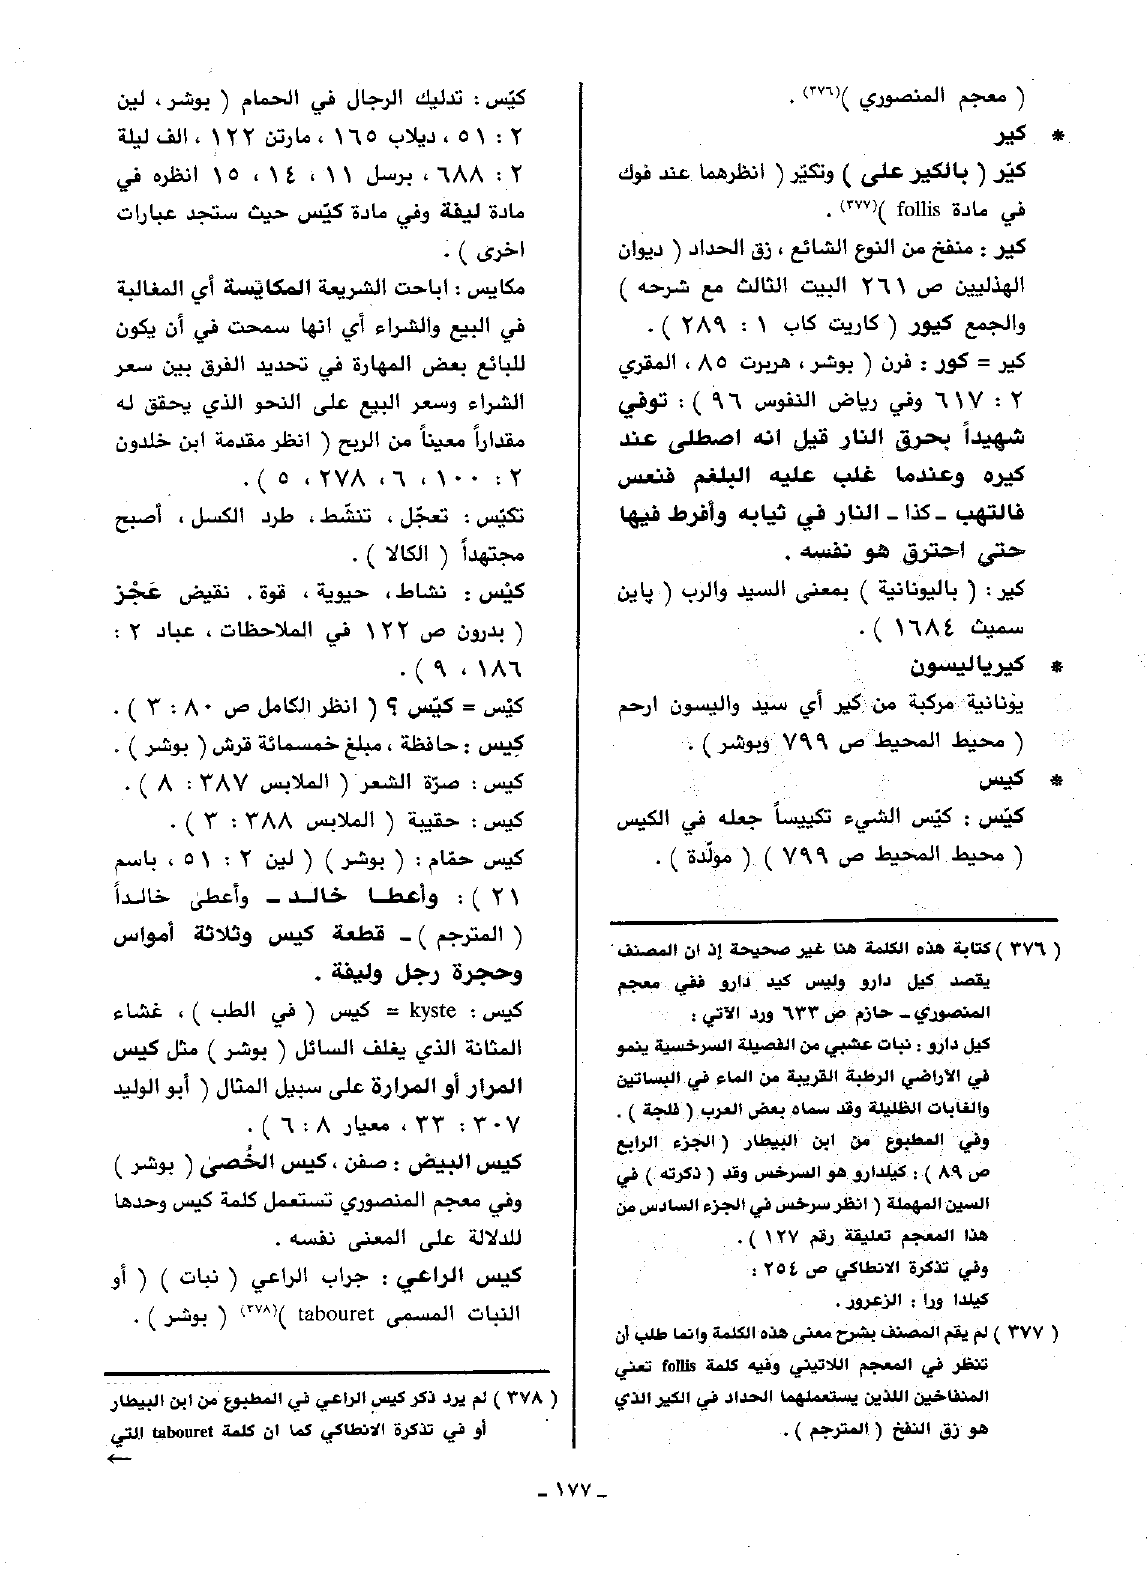 ( معجم المنصوري )(٣٧٦) .
* كير
كيّر ( بالكير على ) وتكيّر ( انظرهما عند فوك
في مادة follis )(٣٧٧) .
كير : منفخ من النوع الشائع ، زق الحداد ( ديوان
الهذليين ص ٢٦١ البيت الثالث مع شرحه )
والجمع كيور ( كاريت كاب ١ : ٢٨٩ ) .
كير = كور : فرن ( بوشر ، هربرت ٨٥ ، المقري
٢ : ٦١٧ وفي رياض النفوس ٩٦ ) : توفي
شهيداً بحرق النار قيل انه اصطلى عند
كيره وعندما غلب عليه البلغم فنعس
فالتهب ـ كذا ـ النار في ثيابه وأفرط فيها
حتى احترق هو نفسه .
كير : ( باليونانية ) بمعنى السيد والرب ( پاين
سميث ١٦٨٤ ) .
* كيرياليسون
يونانية مركبة من كير أي سيد واليسون ارحم
( محيط المحيط ص ٧٩٩ وبوشر ) .
* كيس
كيّس : كيّس الشيء تكييساً جعله في الكيس
( محيط المحيط ص ٧٩٩ ) ( مولّدة ) .
( ٣٧٦ ) كتابة هذه الكلمة هنا غير صحيحة إذ ان المصنف
يقصد كيل دارو وليس كيد دارو ففي معجم
المنصوري ـ حازم ص ٦٣٣ ورد الآتي :
كيل دارو : نبات عشبي من الفصيلة السرخسية ينمو
في الأراضي الرطبة القريبة من الماء في البساتين
والغابات الظليلة وقد سماه بعض العرب ( فلجة ) .
وفي المطبوع من ابن البيطار ( الجزء الرابع
ص ٨٩ ) : كيلدارو هو السرخس وقد ( ذكرته ) في
السين المهملة ( انظر سرخس في الجزء السادس من
هذا المعجم تعليقة رقم ١٢٧ ) .
وفي تذكرة الانطاكي ص ٢٥٤ :
كيلدا ورا : الزعرور .
( ٣٧٧ ) لم يقم المصنف بشرح معنى هذه الكلمة وانما طلب أن
تنظر في المعجم اللاتيني وفيه كلمة follis تعني
المنفاخين اللذين يستعملهما الحداد في الكير الذي
هو زق النفخ ( المترجم ) .
كيّس : تدليك الرجال في الحمام ( بوشر ، لين
٢ : ٥١ ، ديلاب ١٦٥ ، مارتن ١٢٢ ، الف ليلة
٢ : ٦٨٨ ، برسل ١١ ، ١٤ ، ١٥ انظره في
مادة ليفة وفي مادة كيّس حيث ستجد عبارات
اخرى ) .
مكايس : اباحت الشريعة المكايسة أي المغالبة
في البيع والشراء أي انها سمحت في أن يكون
للبائع بعض المهارة في تحديد الفرق بين سعر
الشراء وسعر البيع على النحو الذي يحقق له
مقداراً معيناً من الربح ( انظر مقدمة ابن خلدون
٢ : ١٠٠ ، ٦ ، ٢٧٨ ، ٥ ) .
تكيّس : تعجّل ، تنشّط ، طرد الكسل ، أصبح
مجتهداً ( الكالا ) .
كيْس : نشاط ، حيوية ، قوة . نقيض عَجْز
( بدرون ص ١٢٢ في الملاحظات ، عباد ٢ :
١٨٦ ، ٩ ) .
كيْس = كيّس ؟ ( انظر الكامل ص ٨٠ : ٣ ) .
كيس : حافظة ، مبلغ خمسمائة قرش ( بوشر ) .
كيس : صرّة الشعر ( الملابس ٣٨٧ : ٨ ) .
كيس : حقيبة ( الملابس ٣٨٨ : ٣ ) .
كيس حمّام : ( بوشر ) ( لين ٢ : ٥١ ، باسم
٢١ ) : وأعطا خالد ـ وأعطى خالداً
( المترجم ) ـ قطعة كيس وثلاثة أمواس
وحجرة رجل وليفة .
كيس : kyste = كيس ( في الطب ) ، غشاء
المثانة الذي يغلف السائل ( بوشر ) مثل كيس
المرار أو المرارة على سبيل المثال ( أبو الوليد
٣٠٧ : ٣٣ ، معيار ٨ : ٦ ) .
كيس البيض : صفن ، كيس الخُصىَ ( بوشر )
وفي معجم المنصوري تستعمل كلمة كيس وحدها
للدلالة على المعنى نفسه .
كيس الراعي : جراب الراعي ( نبات ) ( أو
النبات المسمى tabouret )(٣٧٨) ( بوشر ) .
( ٣٧٨ ) لم يرد ذكر كيس الراعي في المطبوع من ابن البيطار
أو في تذكرة الانطاكي كما ان كلمة tabouret التي
←
ـ ١٧٧ ـ